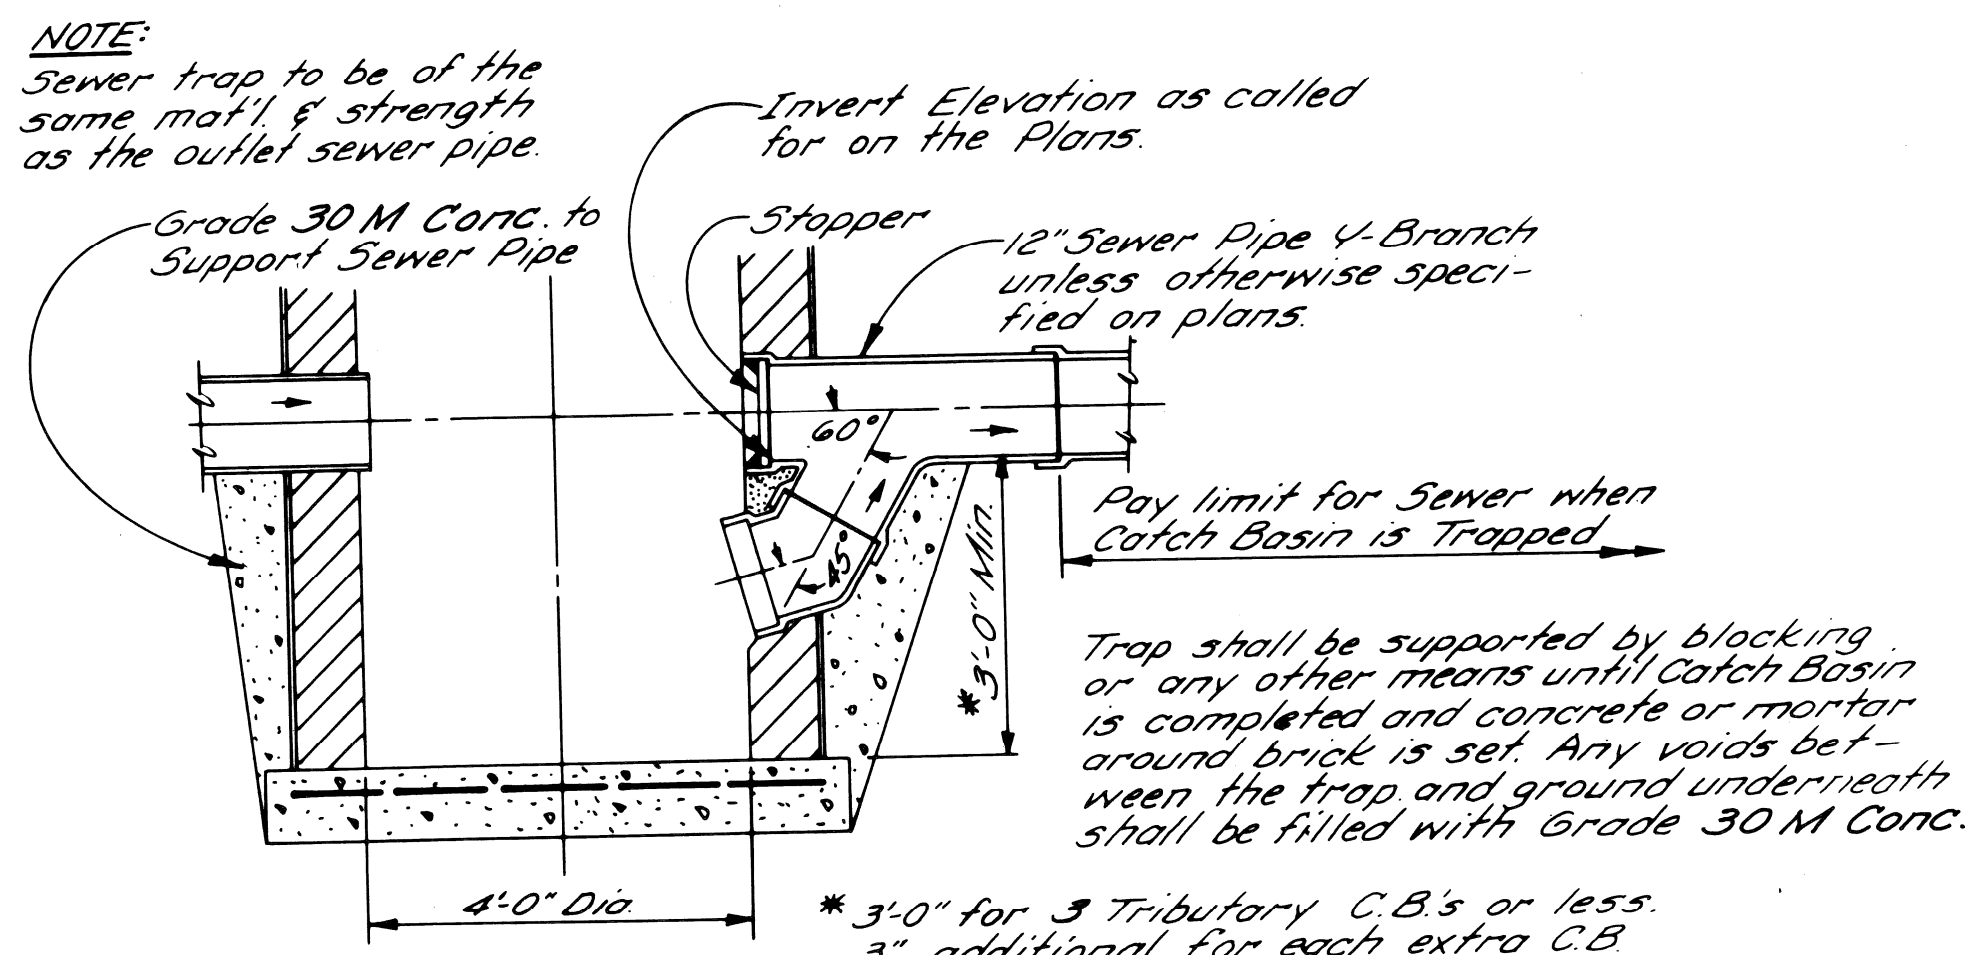 NOTE:
Sewer trap to be of the
same mat'l. & strength
as the outlet sewer pipe.
Grade 30 M Conc. to
Support Sewer Pipe
Invert Elevation as called
for on the Plans.
Stopper
12" Sewer Pipe Y-Branch
unless otherwise speci-
fied on plans.
60°
45°
* 3'-0" Min.
Pay limit for Sewer when
Catch Basin is Trapped
Trap shall be supported by blocking
or any other means until Catch Basin
is completed and concrete or mortar
around brick is set. Any voids bet-
ween the trap and ground underneath
shall be filled with Grade 30 M Conc.
4'-0" Dia.
* 3'-0" for 3 Tributary C.B.'s or less.
3" additional for each extra C.B.